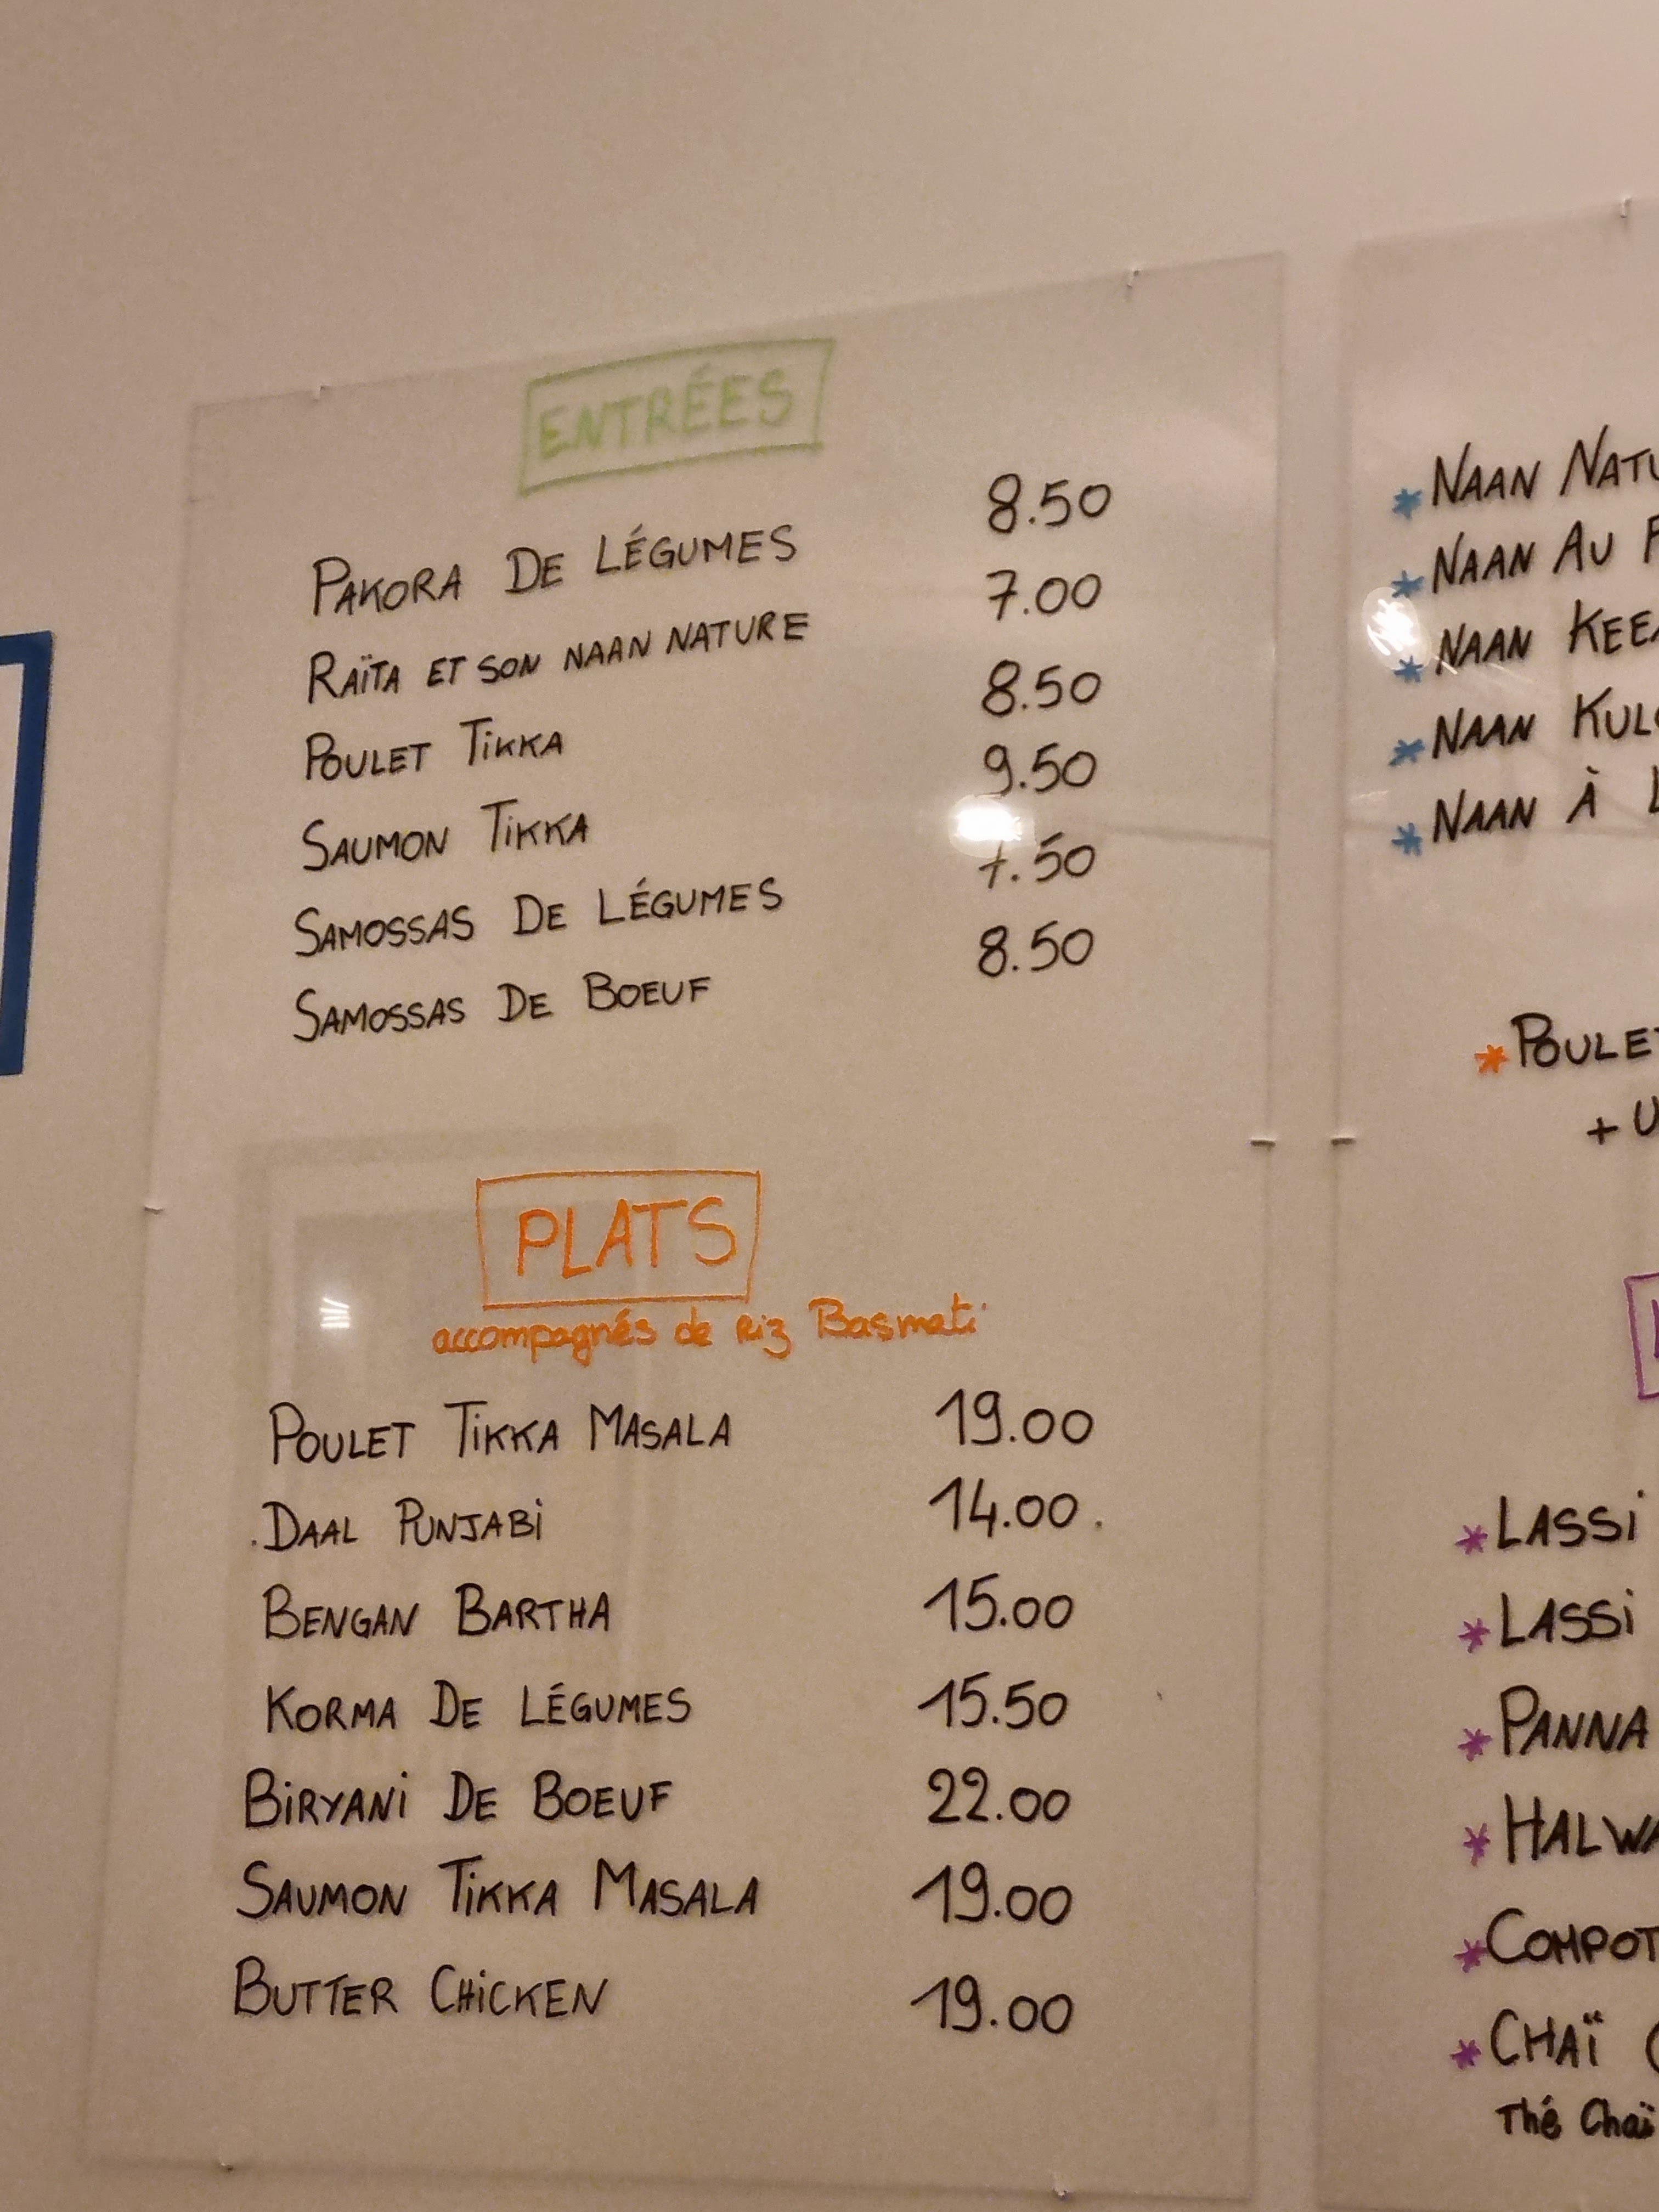 ENTRÉES
PAKORA DE LÉGUMES 8.50
RAÏTA ET SON NAAN NATURE 7.00
POULET TIKKA 8.50
SAUMON TIKKA 9.50
SAMOSSAS DE LÉGUMES 7.50
SAMOSSAS DE BOEUF 8.50
PLATS
accompagnés de Riz Basmati
POULET TIKKA MASALA 19.00
.DAAL PUNJABI 14.00.
BENGAN BARTHA 15.00
KORMA DE LÉGUMES 15.50
BIRYANI DE BOEUF 22.00
SAUMON TIKKA MASALA 19.00
BUTTER CHICKEN 19.00
* NAAN
* NAAN AU
* NAAN
* NAAN
* NAAN À
* POULET
+
* LASSI
* LASSI
* PANNA
* HALWA
*
* CHAÏ
Thé Chaï